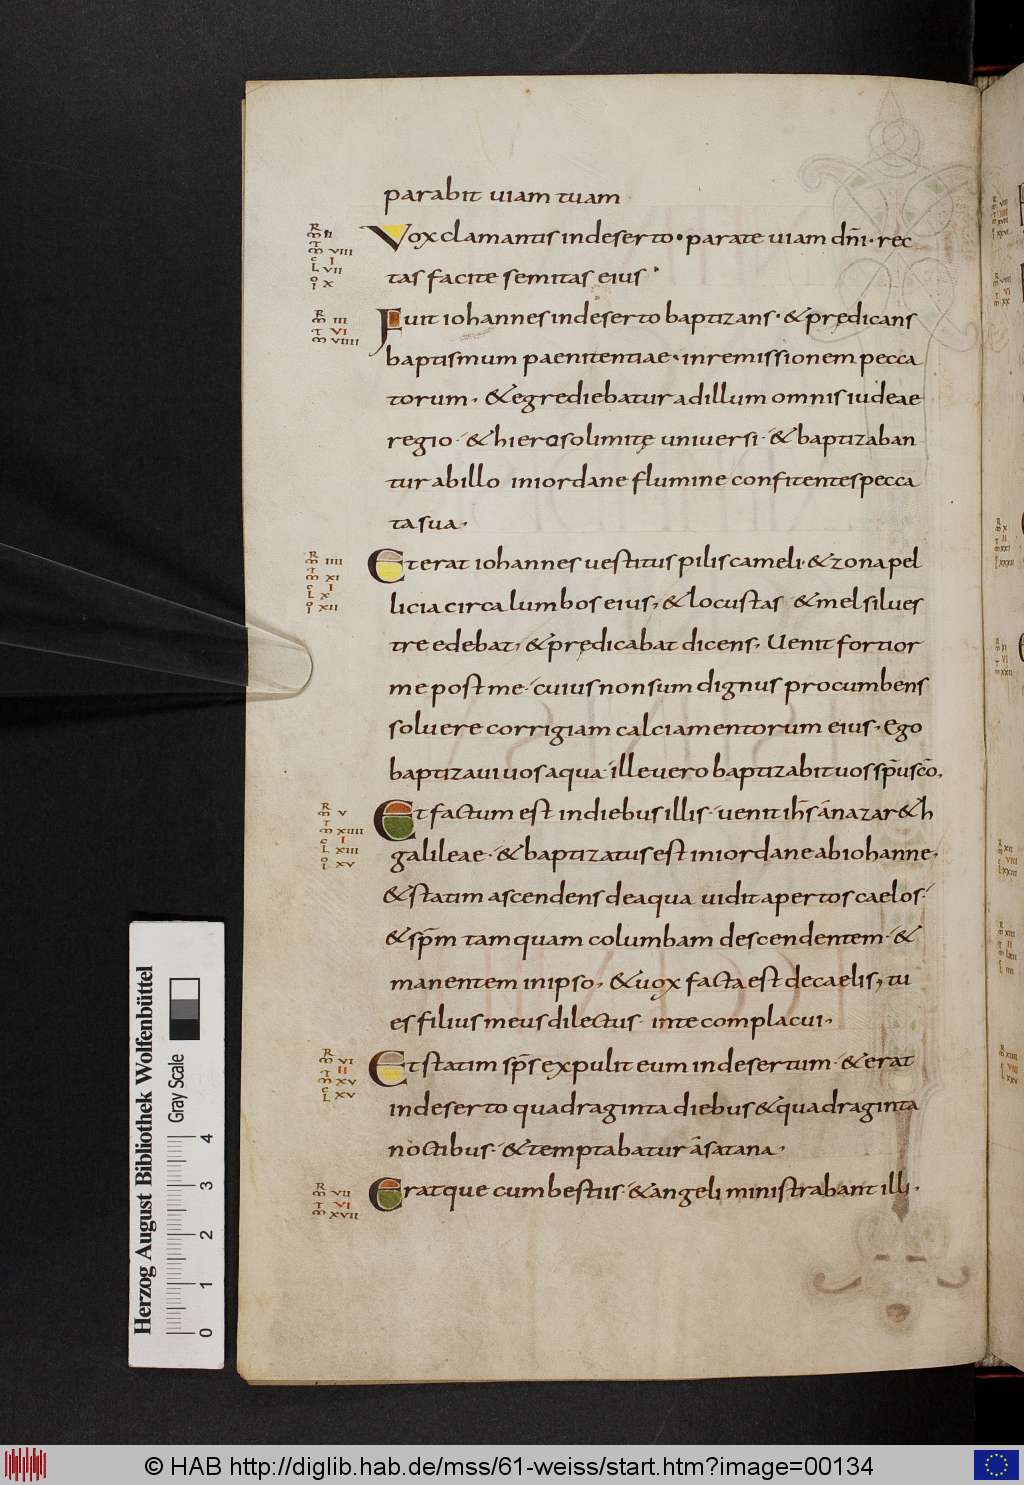 parabit uiam tuam
Vox clamantis in deserto · parate uiam dn̄i · rec
tas facite semitas eius
Fuit iohannes in deserto baptizans · & prędicans
baptismum paenitentiae · in remissionem pecca
torum · & egrediebatur ad illum omnis iudeae
regio · & hierosolimitę uniuersi · & baptizaban
tur ab illo in iordane flumine confitentes pecca
ta sua ·
Et erat iohannes uestitus pilis cameli · & zona pel
licia circa lumbos eius, & locustas & mel silues
tre edebat, & prędicabat dicens, Uenit fortior
me post me · cuius non sum dignus procumbens
soluere corrigiam calciamentorum eius · Ego
baptizaui uos aqua · ille uero baptizabit uos sp̄u sc̄o,
Et factum est in diebus illis · uenit ih̄s á nazar&h
galileae · & baptizatus est in iordane ab iohanne ·
& statim ascendens de aqua uidit apertos caelos ·
& sp̄m tamquam columbam descendentem · &
manentem in ipso, & uox facta est de caelis, tu
es filius meus dilectus · in te complacui,
Et statim sp̄s expulit eum in desertum · & erat
in deserto quadraginta diebus & quadraginta
noctibus · & temptabatur á satana,
Eratque cum bestiis · & angeli ministrabant illi,
R̄ II
m̄ VIII
I
L VII
io X
m̄ III
VI
m̄ VIIII
m̄ IIII
m̄ XI
I
L X
io XII
m̄ V
m̄ XIIII
I
L XIII
io XV
m̄ VI
II
m̄ XV
L XV
m̄ VII
VI
m̄ XVII
Herzog August Bibliothek Wolfenbüttel
Gray Scale
0 1 2 3 4
© HAB http://diglib.hab.de/mss/61-weiss/start.htm?image=00134